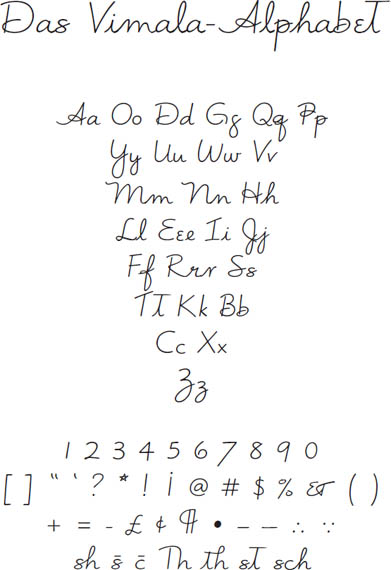 Das Vimala-Alphabet
Aa Oo Dd Gg Qq Pp
Yy Uu Ww Vv
Mm Nn Hh
Ll Eεe Ii Jj
Ff Rrr Ss
Tt Kk Bb
Cc Xx
Zz
1 2 3 4 5 6 7 8 9 0
[ ] “ ‘ ? * ! ¡ @ # $ % & ( )
+ = - £ ¢ ¶ • – — ∴ ∵
sh s̄ c̄ Th th st sch